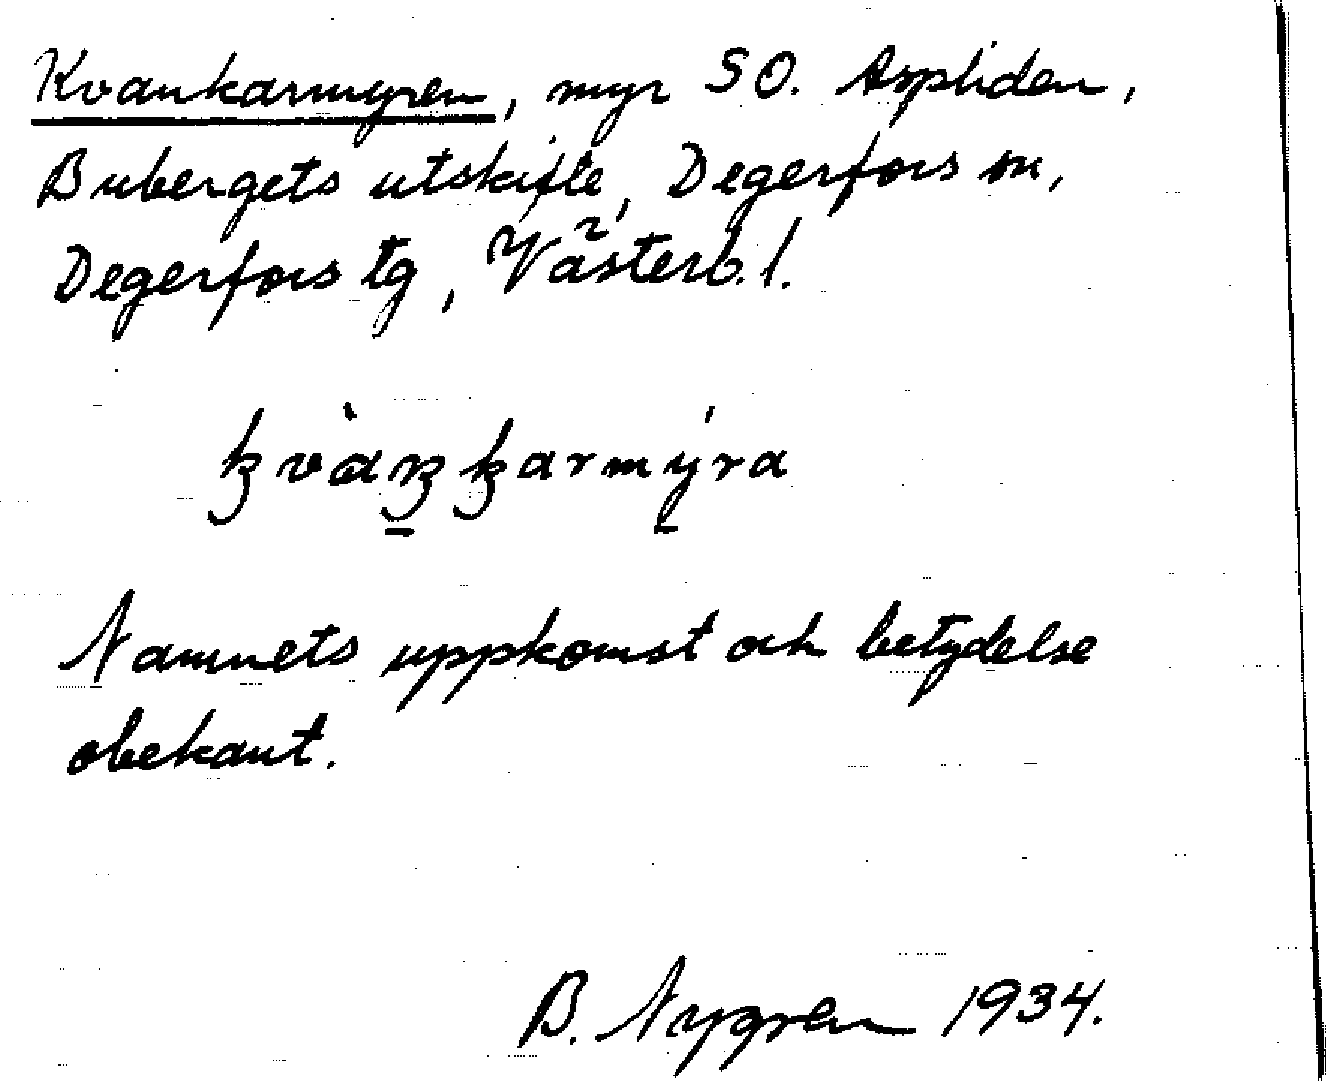 Kvankarmyren, myr SO. Aspliden,
Bubergets utskifte, Degerfors sn,
Degerfors tg, Västerb. l.
kvàŋkarmýra
Namnets uppkomst och betydelse
obekant.
B. Nygren 1934.